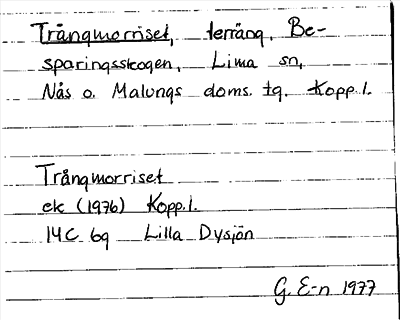 Trångmorriset, terräng, Be-
sparingsskogen, Lima sn,
Nås o. Malungs doms. tg. Kopp. l.
Trångmorriset
ek (1976) Kopp. l.
14C 6g Lilla Dysjön
G. E-n 1977